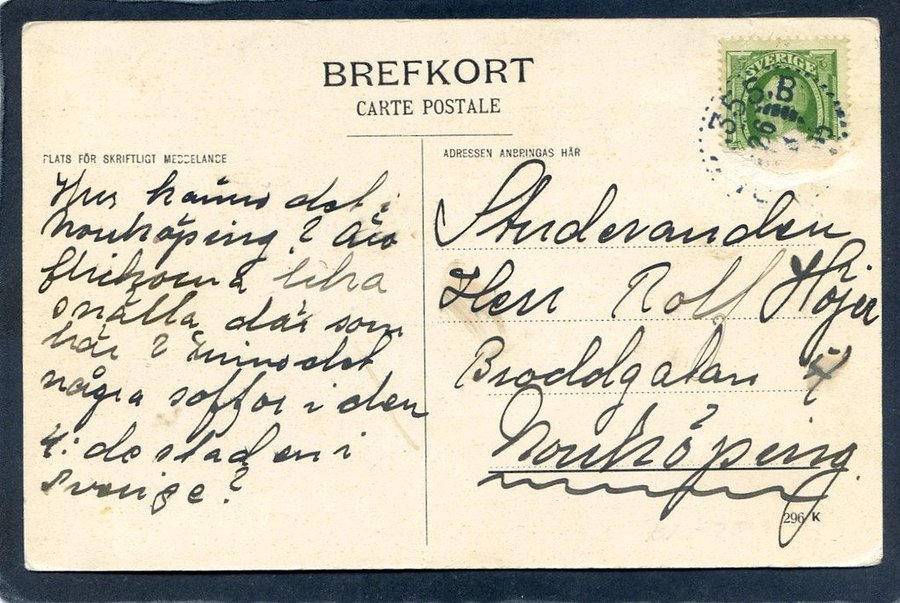 BREFKORT
CARTE POSTALE
SVERIGE
PLATS FÖR SKRIFTLIGT MEDDELANDE
ADRESSEN ANBRINGAS HÄR
Hur känns det i
Norrköping? Äro
flickorna lika
snälla där som
här? Finns det
några soffor i den
4:de staden i
Sverige?
Studeranden
Herr Rolf Höjer
Braddgatan 4
Norrköping.
296 K